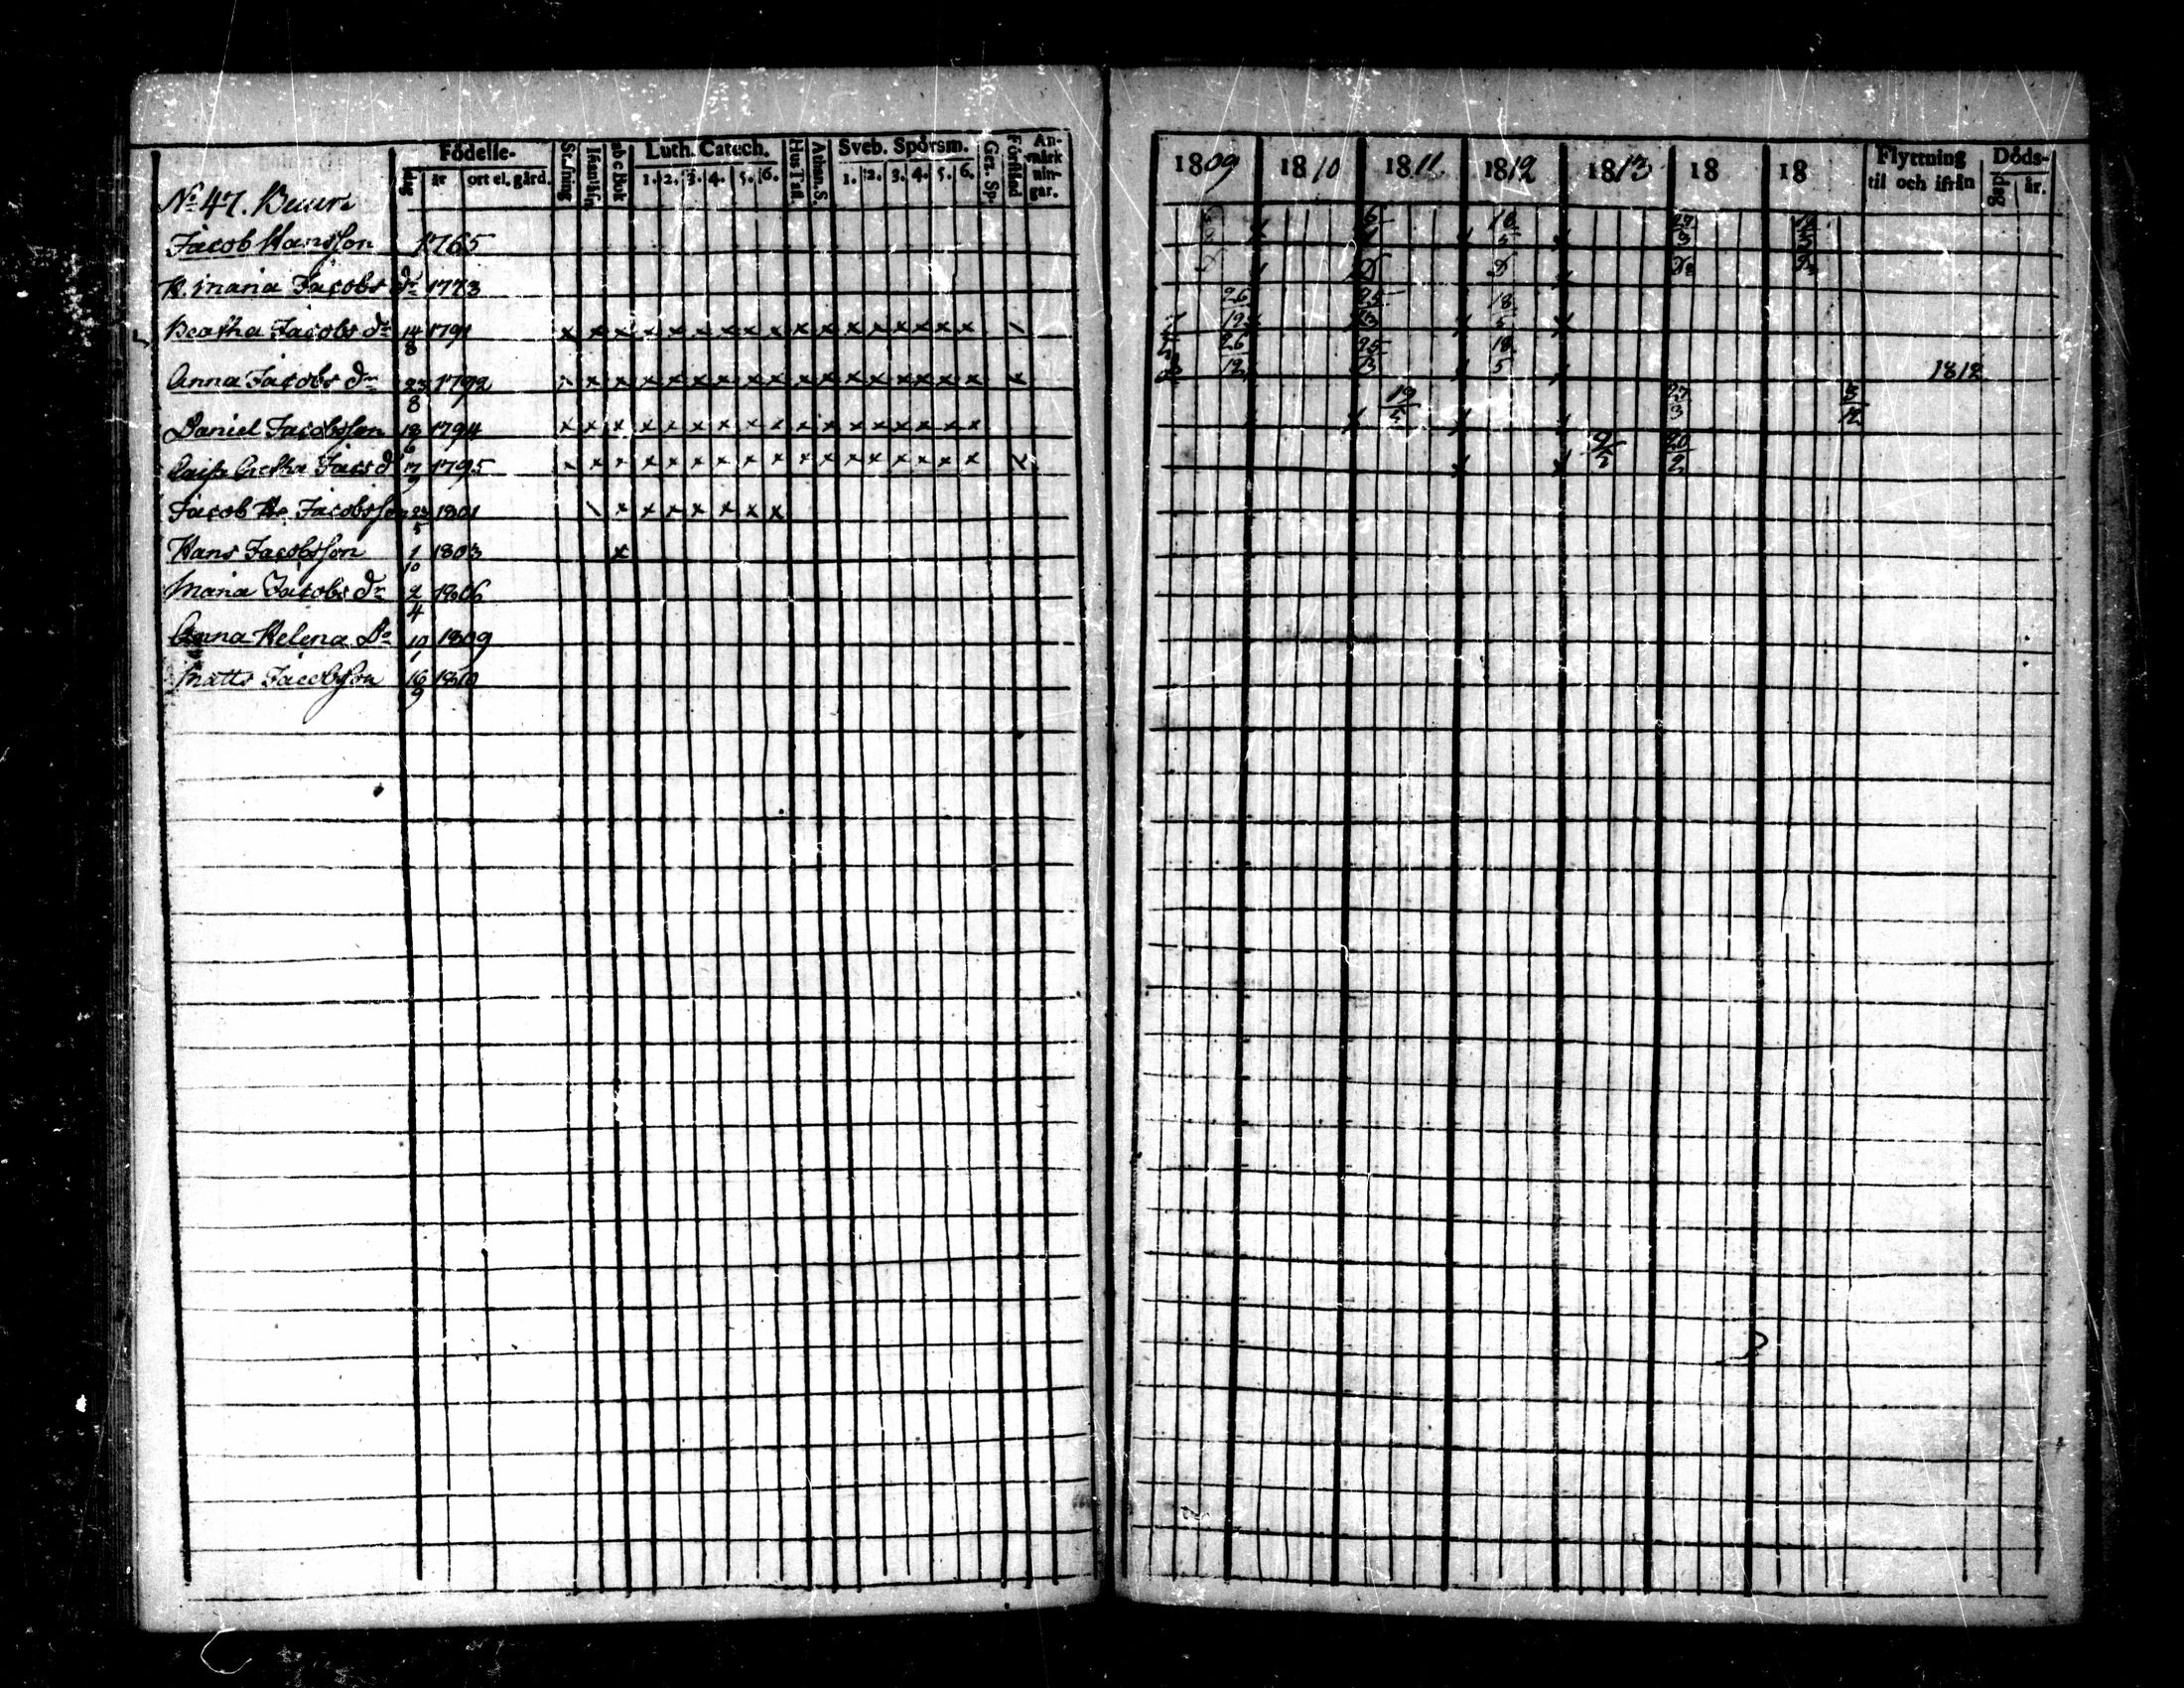 Födelse-
dag år ort el. gård.
Luth. Catech.
1. 2. 3. 4. 5. 6.
abc Bok
Hus Tafl.
Athan. S.
Sveb. Spörsm.
1. 2. 3. 4. 5. 6.
Ger. Sp.
Förstånd
An-
märk
nin-
gar.
No 47.
Jacob Hansson 1765
H. Maria Jacobs dr 1773
Beatha Jacobs dr 14/8 1791 x x x x x x x x x x x x x x x x x
Anna Jacobs dr 23/8 1792 x x x x x x x x x x x x x x x x x x
Daniel Jacobsson 18/6 1794 x x x x x x x x x x x x x x x x x
Caisa Greta Jacs d 7/9 1795 x x x x x x x x x x x x x x x x x x
Jacob Jacobsson 23/5 1801 x x x x x x x
Hans Jacobsson 1/10 1803 x
Maria Jacobs dr 2/4 1806
Anna Helena Do 10/1 1809
Matts Jacobsson 16/9 1810
1809 1810 1811 1812 1813 18 18
Flyttning
til och ifrån
Döds-
dag år.
18/5 27/3
D D
26/12 25/3 18/5
26/12 25/3 18/5 1812
19/5 27/3 3/12
20/2